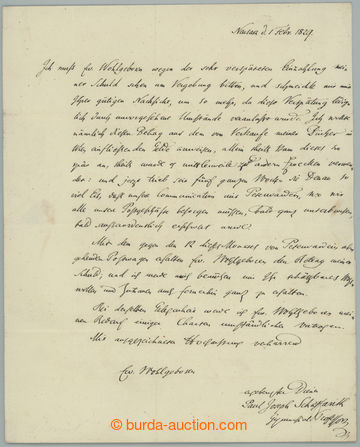 Neusatz d. 1 Febr. 1829.
Ich muß Ew. Wohlgeboren wegen der sehr verspäteten Einzahlung mei-
ner Schuld schon um Vergebung bitten, und schmeichle mir mit
Ihrer gütigen Nachsicht, um so mehr, da diese Verspätung
durch unvorgesehene Umstände veranlaßt wurde. Ich wollte
nämlich diesen Betrag aus dem vom Verkaufe meiner Bücher in
anweisen, allein theils kam dieses zu
spät an, theils wurde es mittlerweile zu andern Zwecken verwen-
det: und jetzt trieb seit fünf ganzen Wochen die Donau so
viel Eis, daß unsere Communication mit Peterwardein, wo wir
alle unsere Postgeschäfte besorgen müssen, bald ganz unterbrochen,
bald außerordentlich erschwert wurde.
Mit dem gegen den 12 dieses Monates von Peterwardein ab-
gehenden Postwagen erhalten Ew. Wohlgeboren den Betrag meiner
Schuld, und ich werde mich bemühen mir Ihr schätzbares Wohl-
wollen und Zutrauen auch fernerhin ganz zu erhalten.
Bei derselben Gelegenheit werde ich Ew. Wohlgeboren mei-
nen Bedarf einiger Charten umständlicher anzeigen.
Mit ausgezeichneter Hochachtung verharrend
Ew. Wohlgeboren
ergebenster Diener
Paul Joseph Schaffarik
© burda-auction.com